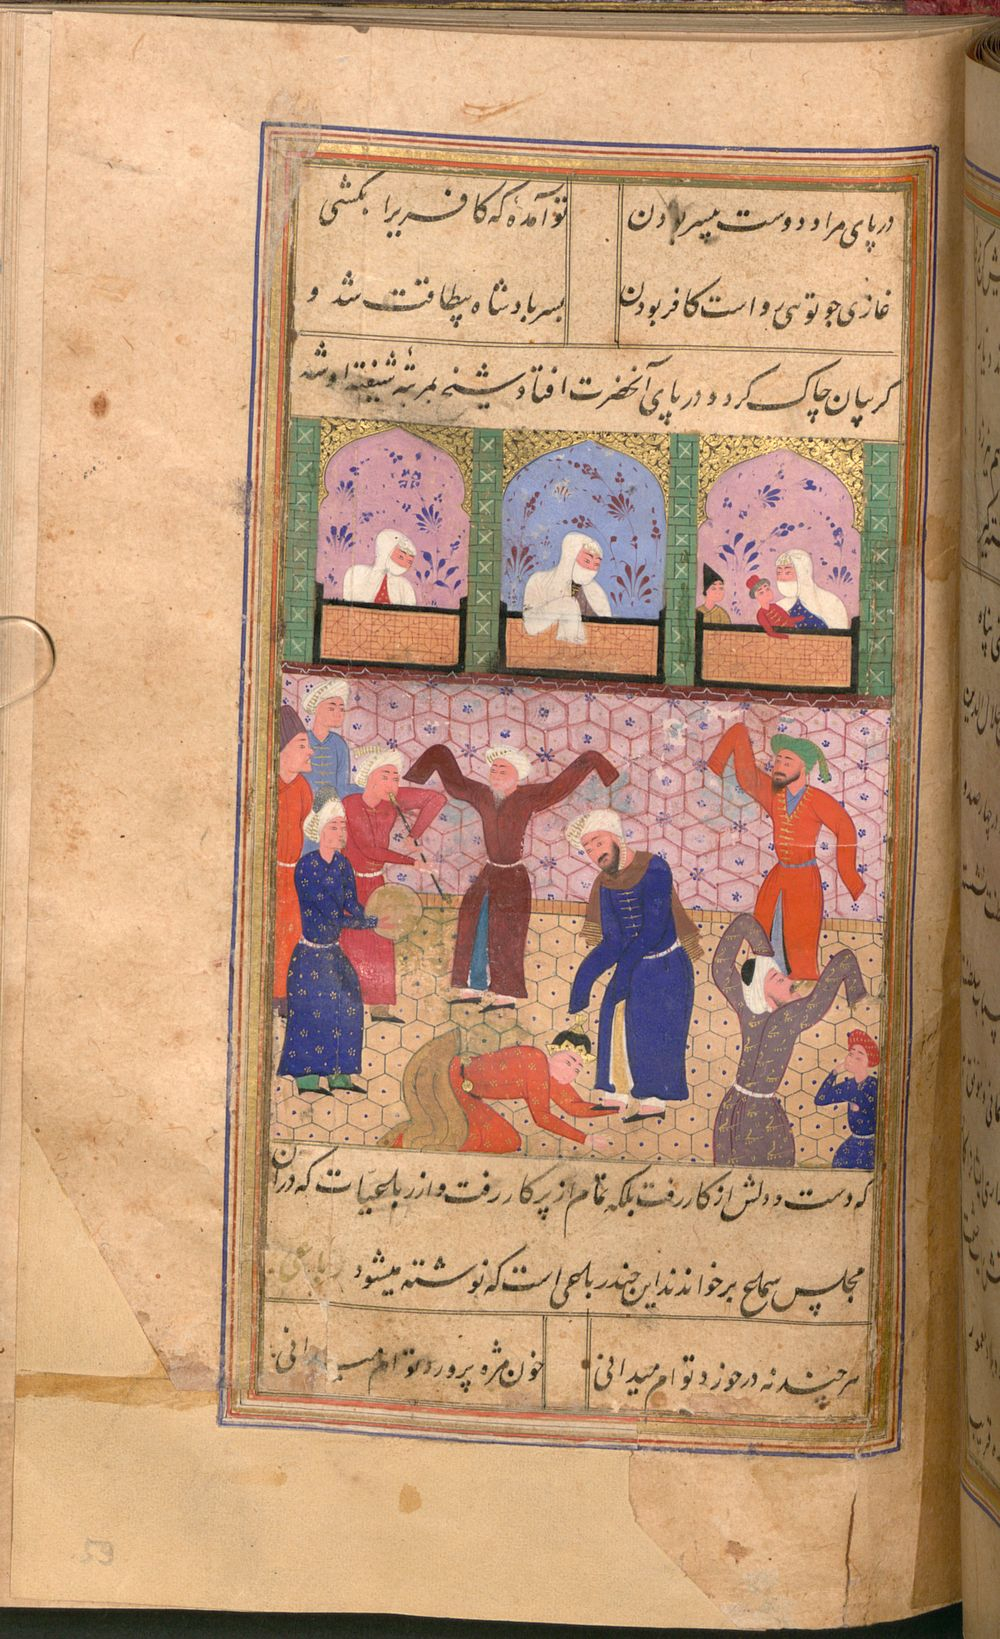 در پای مراد دوست بیسر بودن تو آمده که کافریرا بکشی
غازی چو توئی رواست کافر بودن بسر بادشاه بیطاقت شد و
کریبان چاک کرد و در پای آنحضرت افتاد و شیخ بمرتبهٔ شیفته او شد
که دست و دلش از کار رفت بلکه تمام از پرکار رفت و از رباعیات که در ان
مجلس سماع برخواندند این چند رباعی است که نوشته میشود رباعی
هر چند نه در خورد تو ام میدانی خون مژه پرورد تو ام میدانی
53